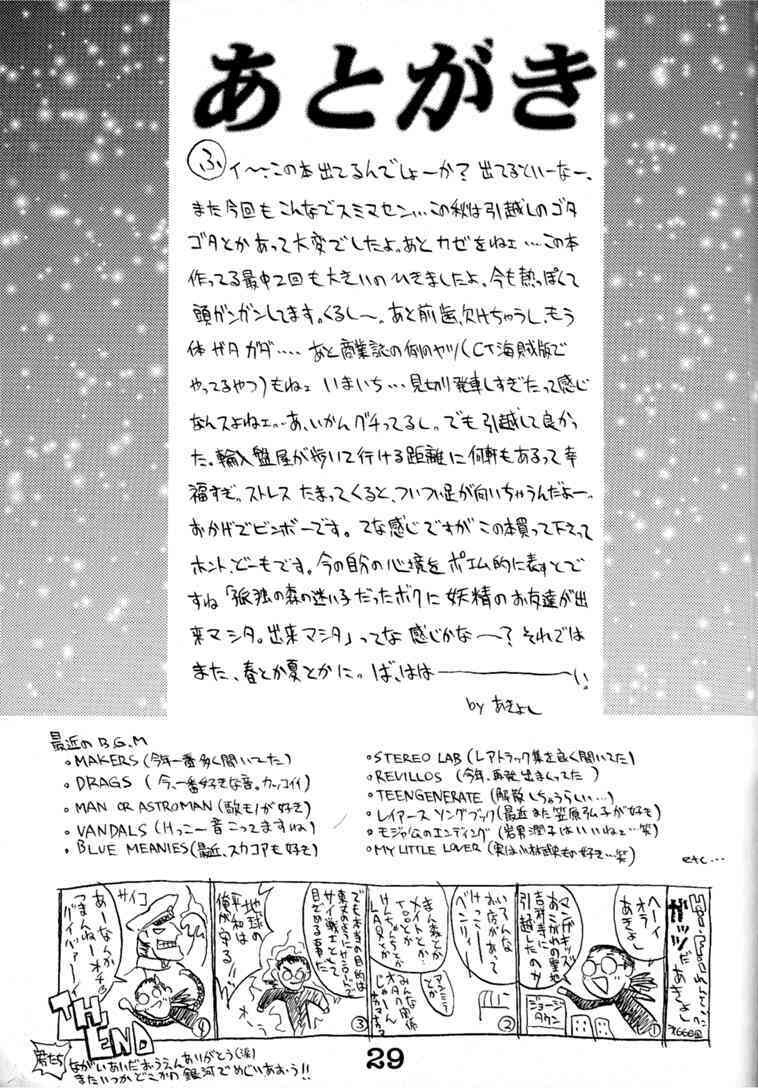 あとがき
ふィ～、この本出てるんでしょーか? 出てるといーなー、
また今回もこんなでスミマセン… この秋は引越しのゴタ
ゴタとかあって大変でしたよ。あとカゼをねェ… この本
作ってる最中2回も大きいのひきましたよ、今も熱っぽくて
頭ガンガンしてます。くるし～。あと前歯、欠けちゃうし、もう
体ガタガタ‥‥ あと商業誌の例のヤツ(CT海賊版で
やってるやつ)もねェ いまいち… 見切り発車しすぎたって感じ
なんスよねェ…あ、いかんグチってるし。でも引越して良かっ
た。輸入盤屋が歩いて行ける距離に何軒もあるって幸
福すぎ。ストレス たまってくると、ついつい足が向いちゃうんだよー。
おかげでビンボーです。てな感じですがこの本買って下さって
ホントどーもです。今の自分の心境を ポエム的に表すとで
すね「孤独の森の迷い子だったボクに 妖精のお友達が出
来マシタ。出来マシタ」ってな 感じかな～? それでは
また、春とか夏とかに。ば、はは――――い。
by あきよし
最近のB.G.M
・MAKERS (今年一番多く聞いてた)
・DRAGS (今、一番好きな音。カッコイイ)
・MAN OR ASTROMAN (敵もノが好き)
・VANDALS (けっこー音こってますね)
・BLUE MEANIES (最近、スカコアも好き)
・STEREO LAB (レアトラック集を良く聞いてた)
・REVILLOS (今年、再発出まくってた)
・TEENGENERATE (解散しちゃうらしい…)
・レイアース ソングブック (最近また笠原弘子が好き)
・モジャ公のエンディング (岩男潤子はいいねェ…笑)
・MY LITTLE LOVER (実は小林武史も好き…笑)
etc…
ガッツだあきよし
第666回
ヘーイ
オラ
あきよし
マンガキッズ
あこがれの聖地
吉祥寺に
引越したのサ
ジョージ
タウン
①
いろんな
お店があって
けっこー
ベンリィー
②
まんだとか
メイトとか
アニミニ
とか
みんな
オタク関係
じゃーん
でも本当の目的は
サイ戦士として
目ざめる事だ
地球の
平和は
俺が守る!!
③
サイコ
あーなんか
つまんねーオチ
グイバァーイ
④
TH END
君たち
ながいあいだおうえんありがとう(涙)
またいつかどこかの 銀河でめぐりあおう!!
29